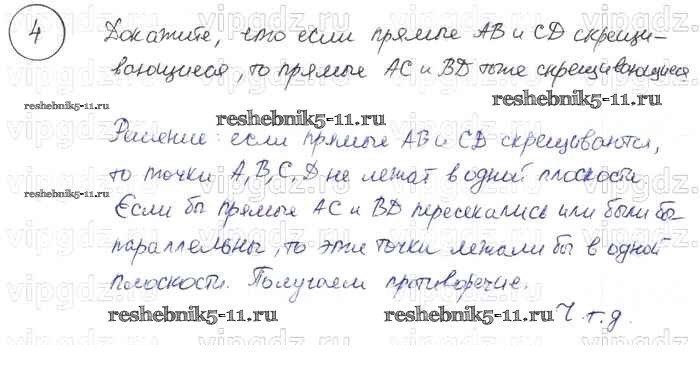 4 Докажите, что если прямые AB и CD скрещи-
вающиеся, то прямые AC и BD тоже скрещивающиеся
reshebnik5-11.ru reshebnik5-11.ru reshebnik5-11.ru
Решение: если прямые AB и CD скрещиваются,
то точки A, B, C, D не лежат в одной плоскости
reshebnik5-11.ru reshebnik5-11.ru reshebnik5-11.ru
Если бы прямые AC и BD пересекались или были бы
параллельны, то эти точки лежали бы в одной
плоскости. Получаем противоречие.
reshebnik5-11.ru reshebnik5-11.ru Ч.т.д.